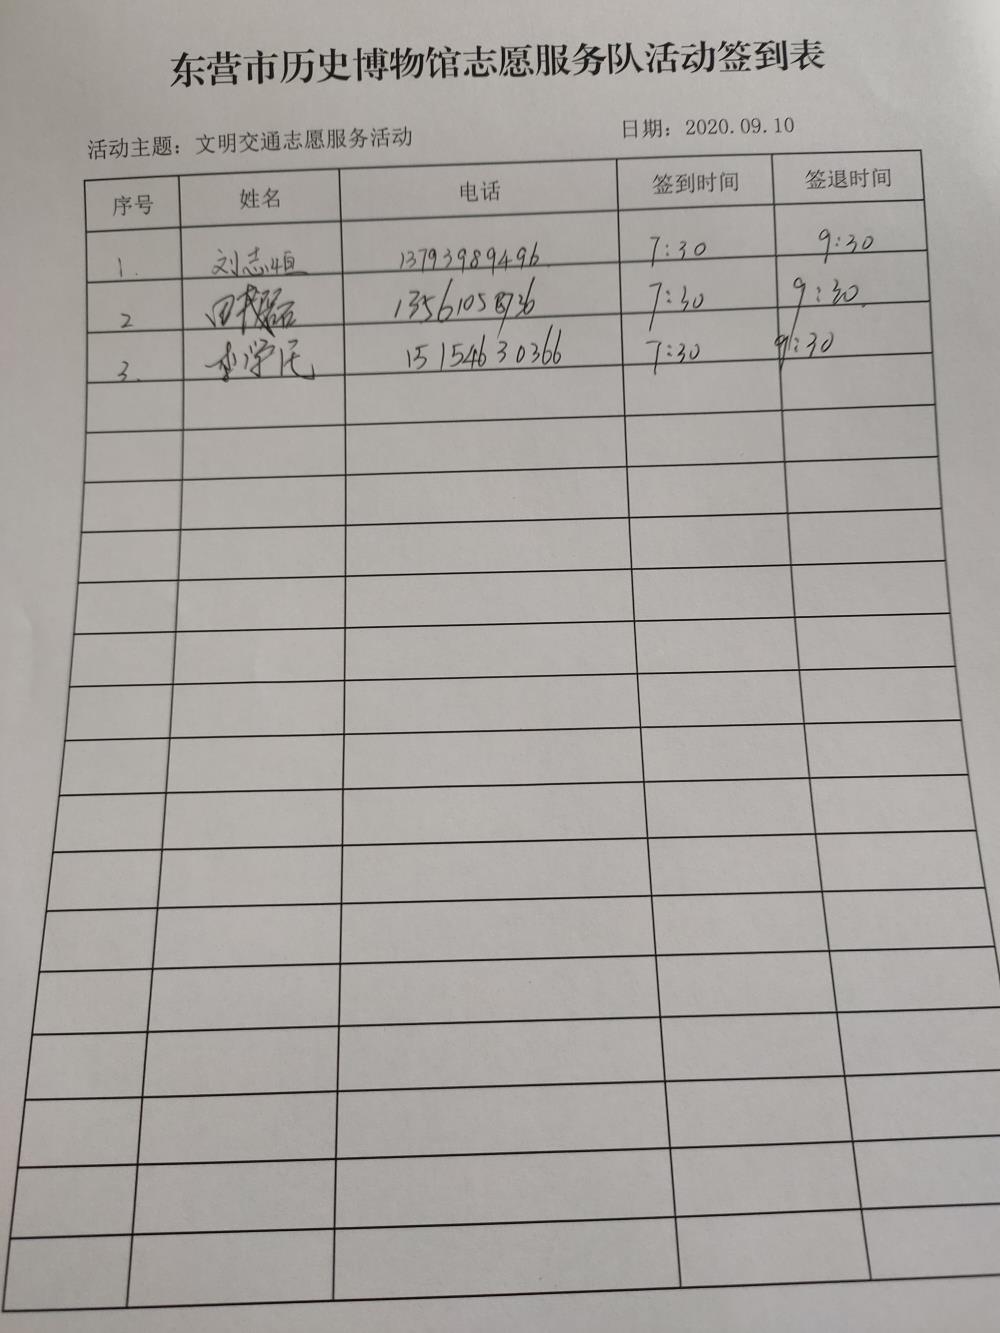 东营市历史博物馆志愿服务队活动签到表
活动主题：文明交通志愿服务活动 日期：2020.09.10
序号 姓名 电话 签到时间 签退时间
1. 刘志恒 13793989496 7:30 9:30
2 田 磊 7:30 9:30
3. 李学民 15154630366 7:30 9:30